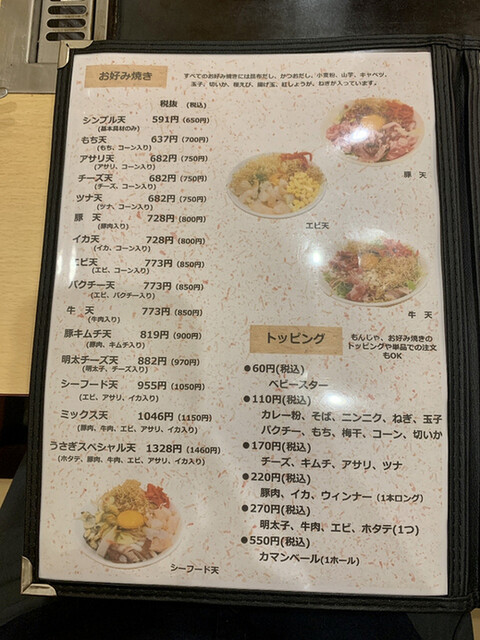 お好み焼き
すべてのお好み焼きには昆布だし、かつおだし、小麦粉、山芋、キャベツ、
玉子、切いか、桜えび、揚げ玉、紅しょうが、ねぎが入っています。
税抜 (税込)
シンプル天 591円(650円)
(基本具材のみ)
もち天 637円(700円)
(もち、コーン入り)
アサリ天 682円(750円)
(アサリ、コーン入り)
チーズ天 682円(750円)
(チーズ、コーン入り)
ツナ天 682円(750円)
(ツナ、コーン入り)
豚 天 728円(800円)
(豚肉入り)
イカ天 728円(800円)
(イカ、コーン入り)
エビ天 773円(850円)
(エビ、コーン入り)
パクチー天 773円(850円)
(エビ、パクチー入り)
牛 天 773円(850円)
(牛肉入り)
豚キムチ天 819円(900円)
(豚肉、キムチ入り)
明太チーズ天 882円(970円)
(明太子、チーズ入り)
シーフード天 955円(1050円)
(エビ、アサリ、イカ入り)
ミックス天 1046円(1150円)
(豚肉、牛肉、エビ、アサリ、イカ入り)
うさぎスペシャル天 1328円(1460円)
(ホタテ、豚肉、牛肉、エビ、アサリ、イカ入り)
シーフード天
豚 天
エビ天
牛 天
トッピング
もんじゃ、お好み焼きの
トッピングや単品での注文
もOK
●60円(税込)
ベビースター
●110円(税込)
カレー粉、そば、ニンニク、ねぎ、玉子
パクチー、もち、梅干、コーン、切いか
●170円(税込)
チーズ、キムチ、アサリ、ツナ
●220円(税込)
豚肉、イカ、ウィンナー(1本ロング)
●270円(税込)
明太子、牛肉、エビ、ホタテ(1つ)
●550円(税込)
カマンベール(1ホール)